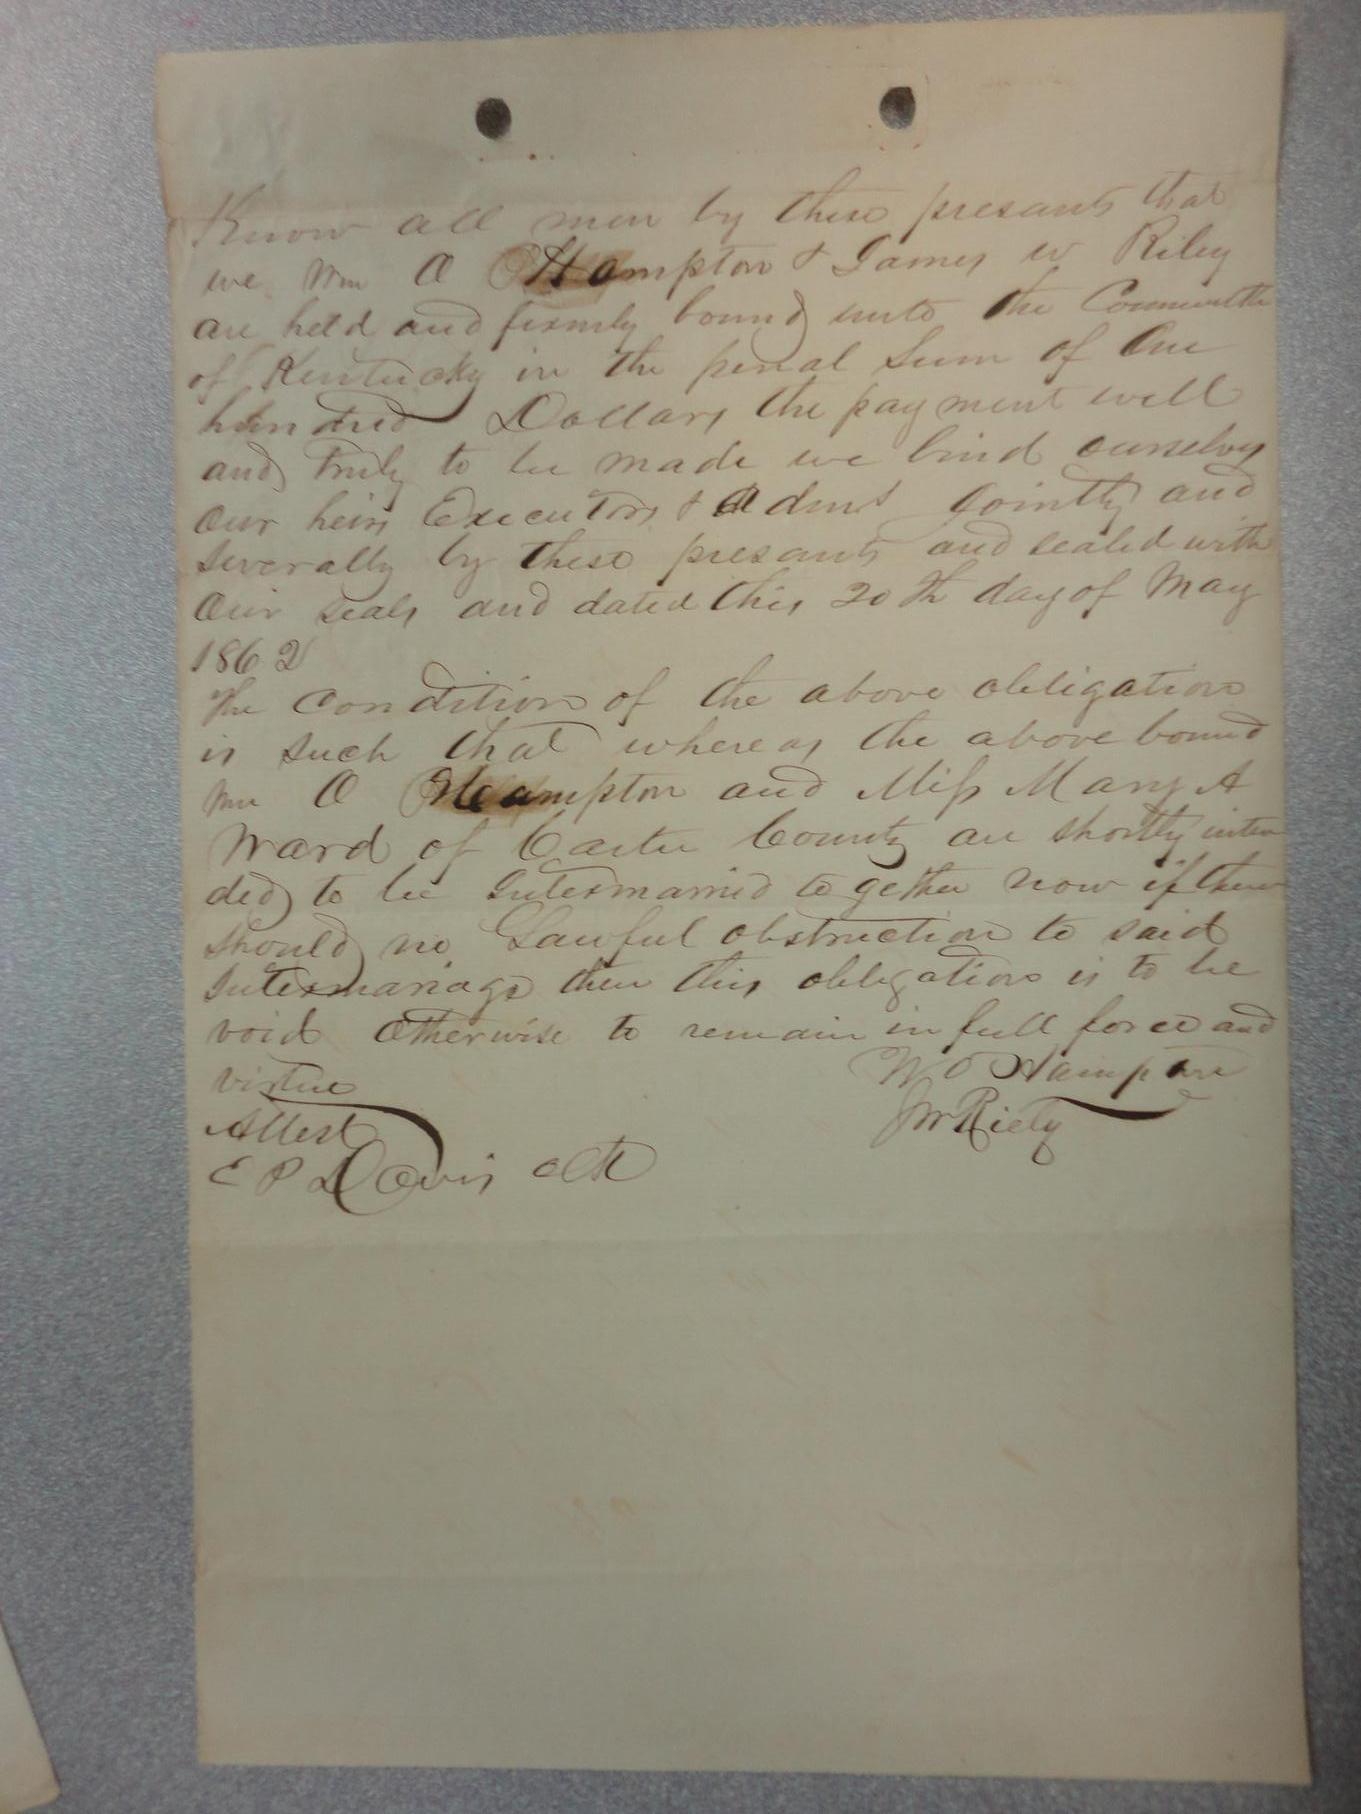 Know all men by these presants that
we Wm O Hampton & James W Riley
are held and firmly bound unto the Commwlth
of Kentucky in the penal Sum of One
hundred Dollars the payment well
and Truly to be made we bind ourselves
our heirs Executors & Adms Jointly and
severally by these presants and sealed with
Our seals and dated this 20th day of May
1862
The Condition of the above obligation
is such that whereas the above bound
Wm O Hampton and Miss Mary A
Ward of Carter County are shortly inten
ded to be Intermarried together now if there
should no Lawful obstruction to said
Intermariage then this obligation is to be
void otherwise to remain in full force and
virtue
W O Hampton
Attest
JW Riely
E P Davis clk